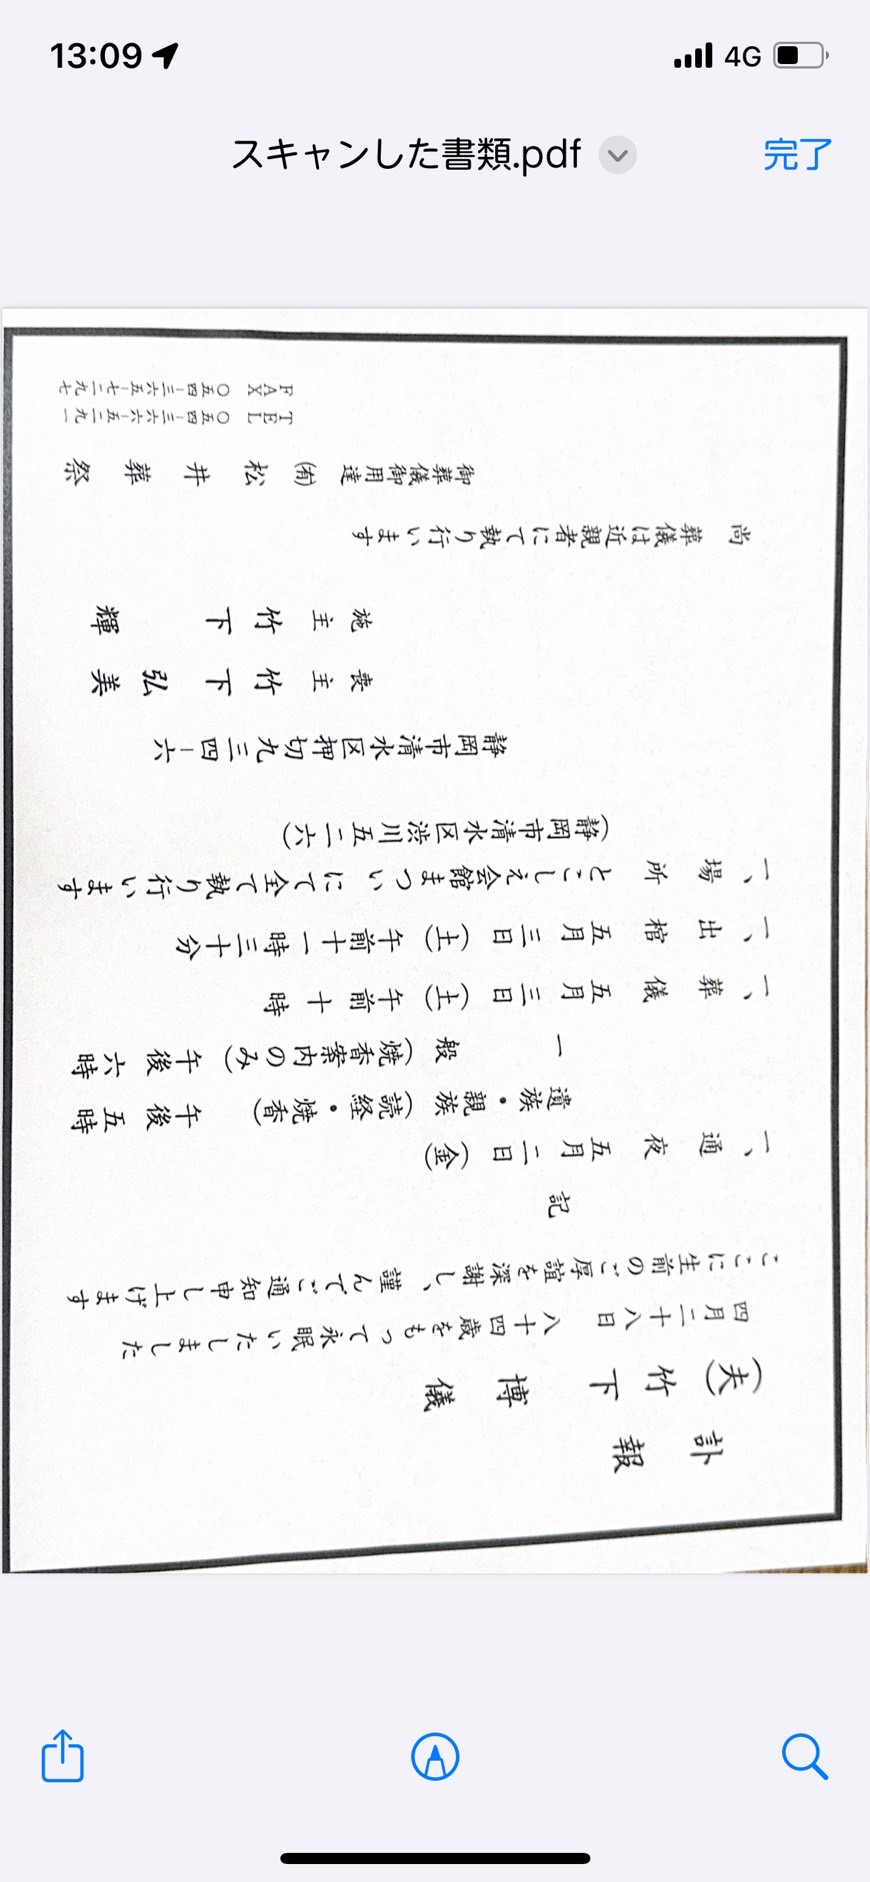 13:09
4G
スキャンした書類.pdf
完了
訃報
（夫）竹下 博 儀
四月二十八日 八十四歳をもって永眠いたしました
ここに生前のご厚誼を深謝し、謹んでご通知申し上げます
記
一、通夜 五月二日（金）
遺族・親族（読経・焼香） 午後五時
一般（焼香案内のみ）午後六時
一、葬儀 五月三日（土）午前十時
一、出棺 五月三日（土）午前十一時三十分
一、場所 とこしえ会館まつい にて全て執り行います
（静岡市清水区渋川五二六）
静岡市清水区押切九三四-六
喪主 竹下弘美
施主 竹下 輝
尚 葬儀は近親者にて執り行います
御葬儀御用達 ㈲ 松井葬祭
TEL 〇五四-三六六-六-五二九一
FAX 〇五四-三六五-七二九七